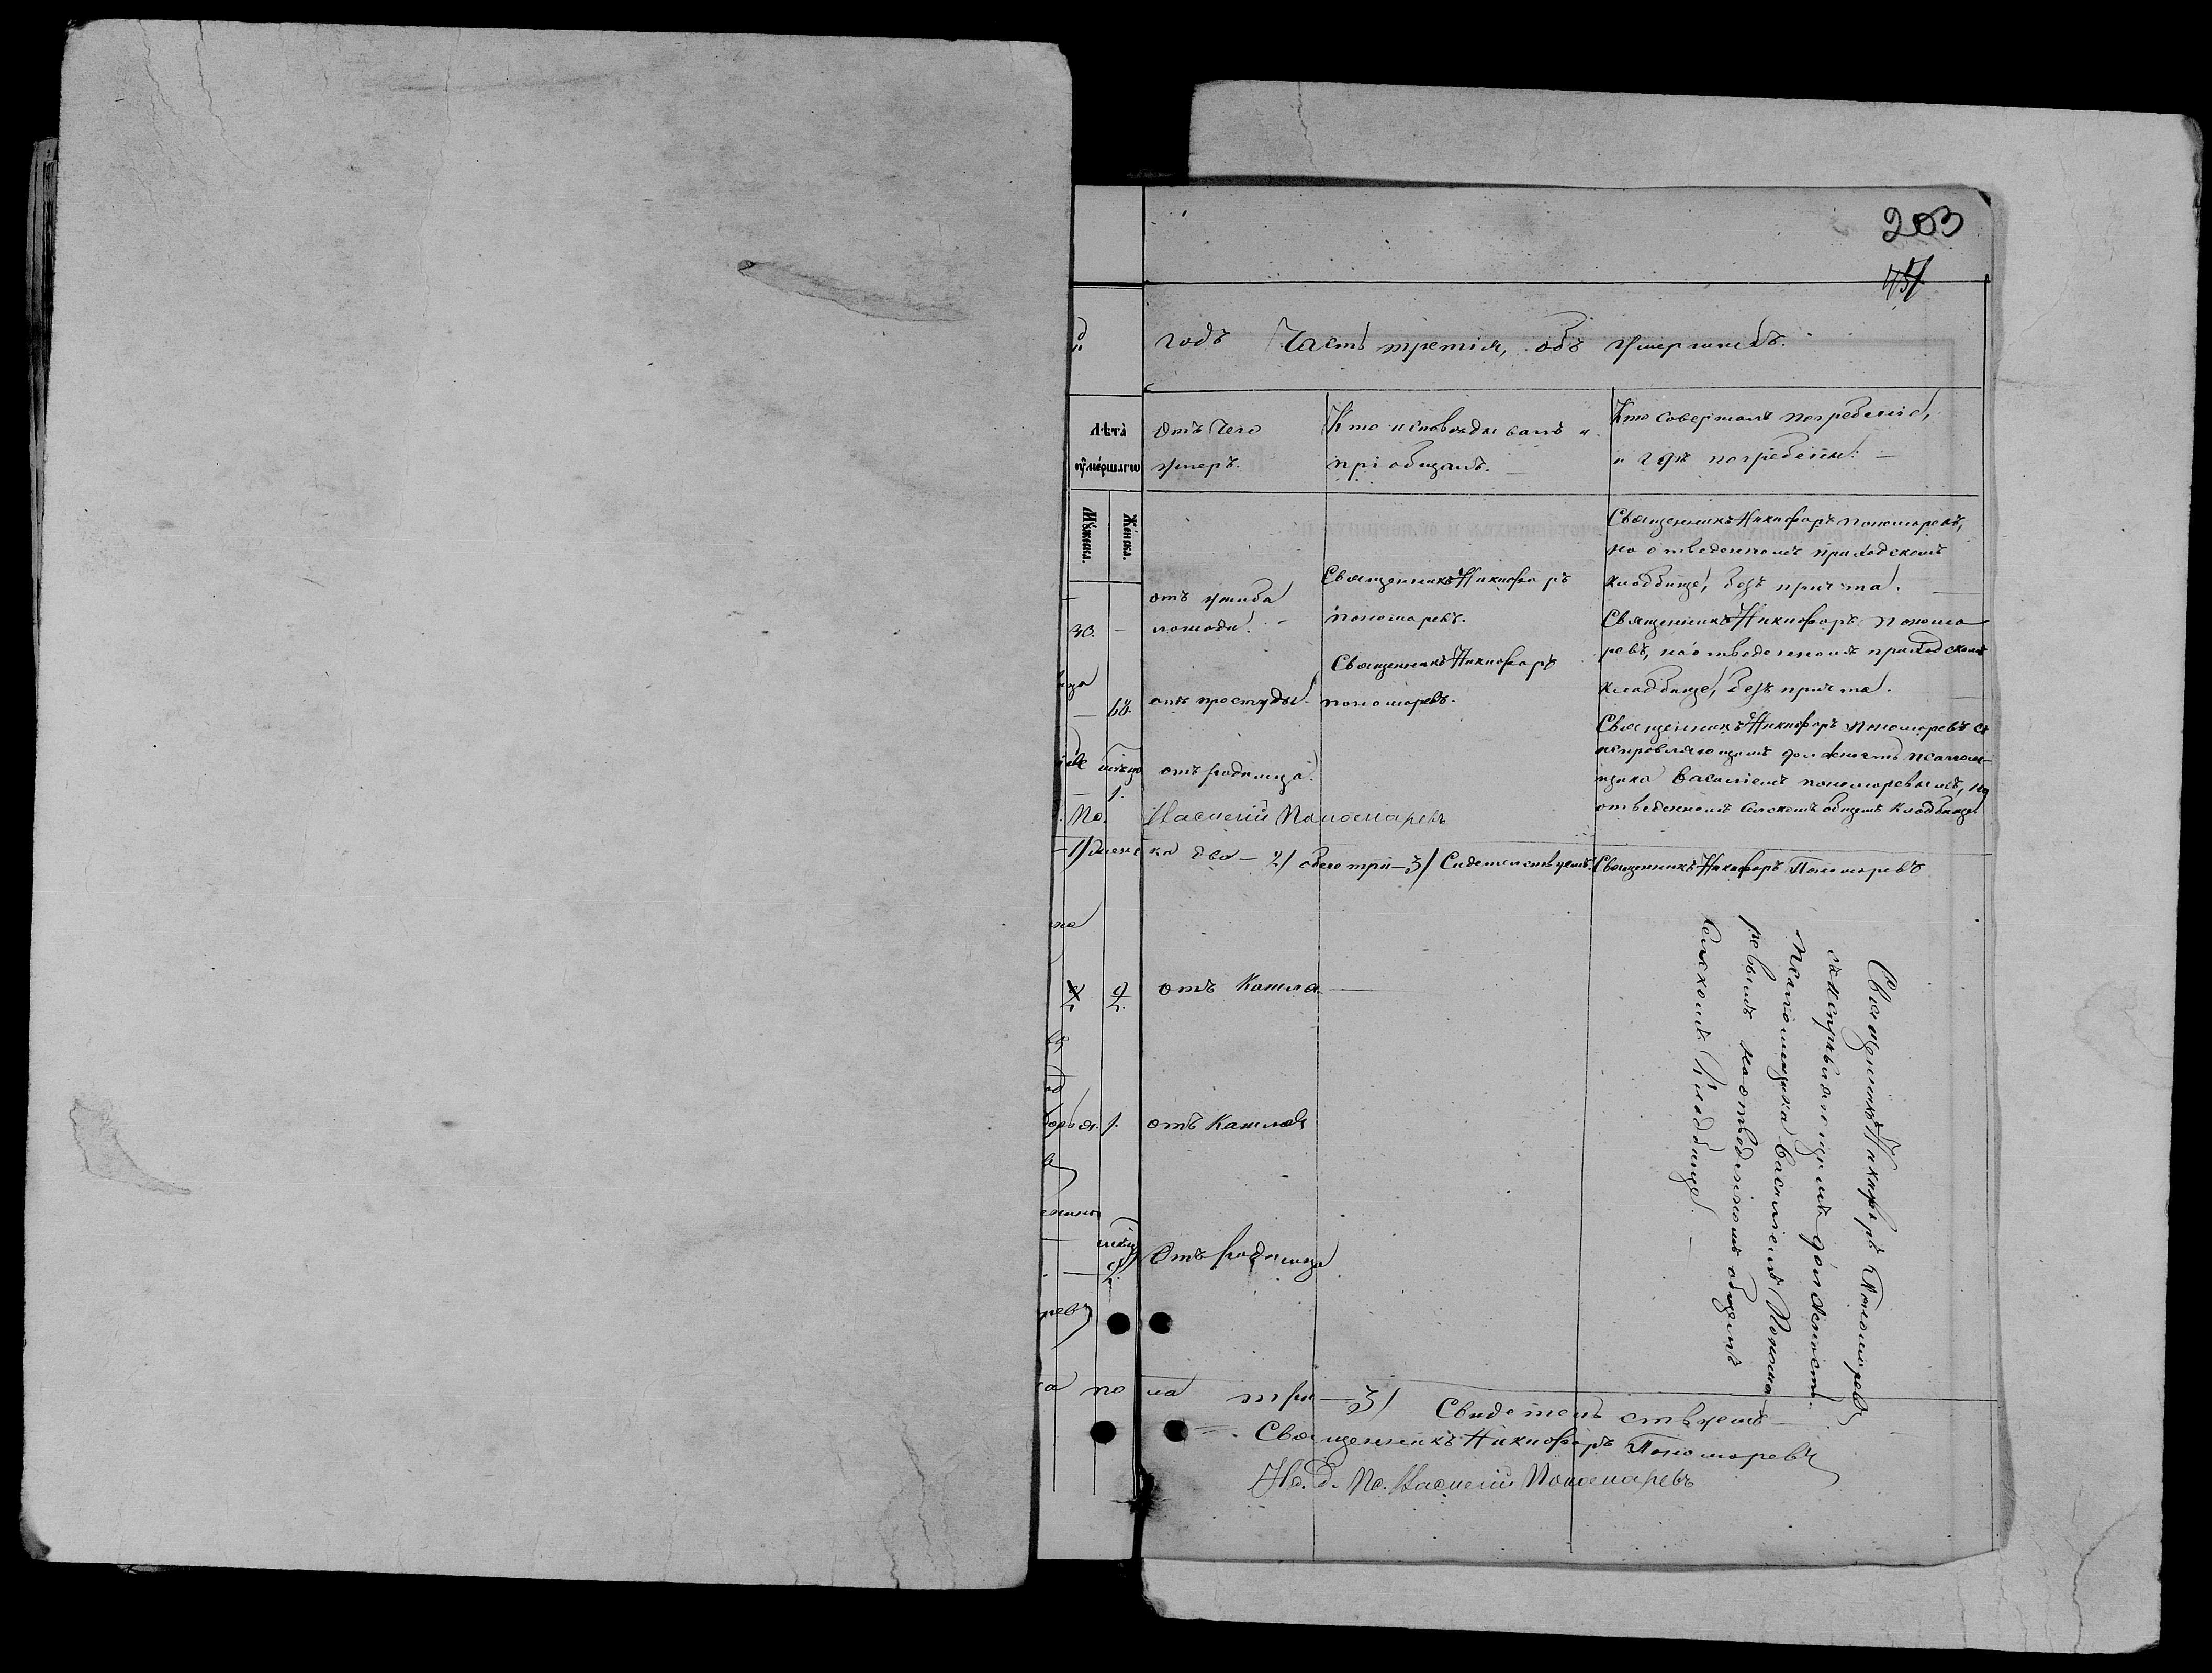 203
годъ Часть третія, объ умершихъ.
Лѣта
умершаго
Мужеска.
Женска.
Отъ чего
умеръ.
Кто исповѣдывалъ и
пріобщалъ. —
Кто совершалъ погребеніе,
и гдѣ погребены: —
30. —
отъ ушиба
лошади. —
Священникъ Никифоръ
Пономаревъ.
Священникъ Никифоръ Пономаревъ,
на отведенномъ приходскомъ
кладбищѣ, безъ причта. —
— 68.
отъ простуды.
Священникъ Никифоръ
Пономаревъ.
Священникъ Никифоръ Понома
ревъ, на отведенномъ приходскомъ
кладбищѣ, безъ причта. —
1.
отъ родимца.
Священникъ Никифоръ Пономаревъ съ
исправляющимъ должность псалом-
щика Василіемъ Пономаревымъ, на
отведенномъ сельскомъ общемъ кладбищѣ.
По. Василій Пономаревъ
ка два — 2/ обоего три — 3/ Свидетельствуемъ: Священникъ Никифоръ Пономаревъ
отъ кашля. —
1. отъ кашля
Отъ родимца
Священникъ Никифоръ Пономаревъ
съ исправляющимъ должность
псаломщика Василіемъ Понома
ревымъ на отведенномъ общемъ
сельскомъ кладбищѣ. —
по ла три — 3/ Свидетельствуемъ —
Священникъ Никифоръ Пономаревъ
И. д. Пс. Василій Пономаревъ